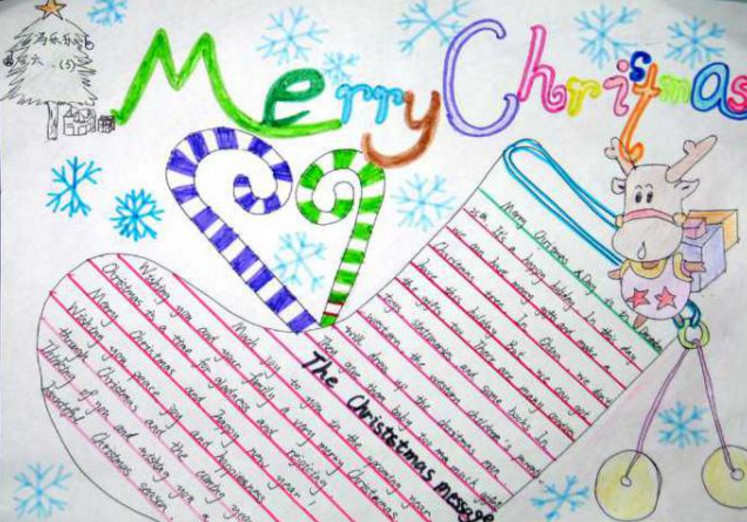 Merry Christmas
Merry Christmas Day is
It's a happy holiday. In this day
we can have many gifts and make a
Christmas tree. In China, we don't
have this holiday. But we can get
the gifts too. There are many
toys and some books. In
western the western children's parents
will dress up the christmas tree
The Christstmas message
Much joy to you in the upcoming year
Wishing you and your family a very merry Christmas
Christmas is a time for gladness and rejoicing
Merry Christmas and happy new year
Wishing you peace joy and happiness
through Christmas and the coming year
Thinking of you and wishing you a
beautiful Christmas season.